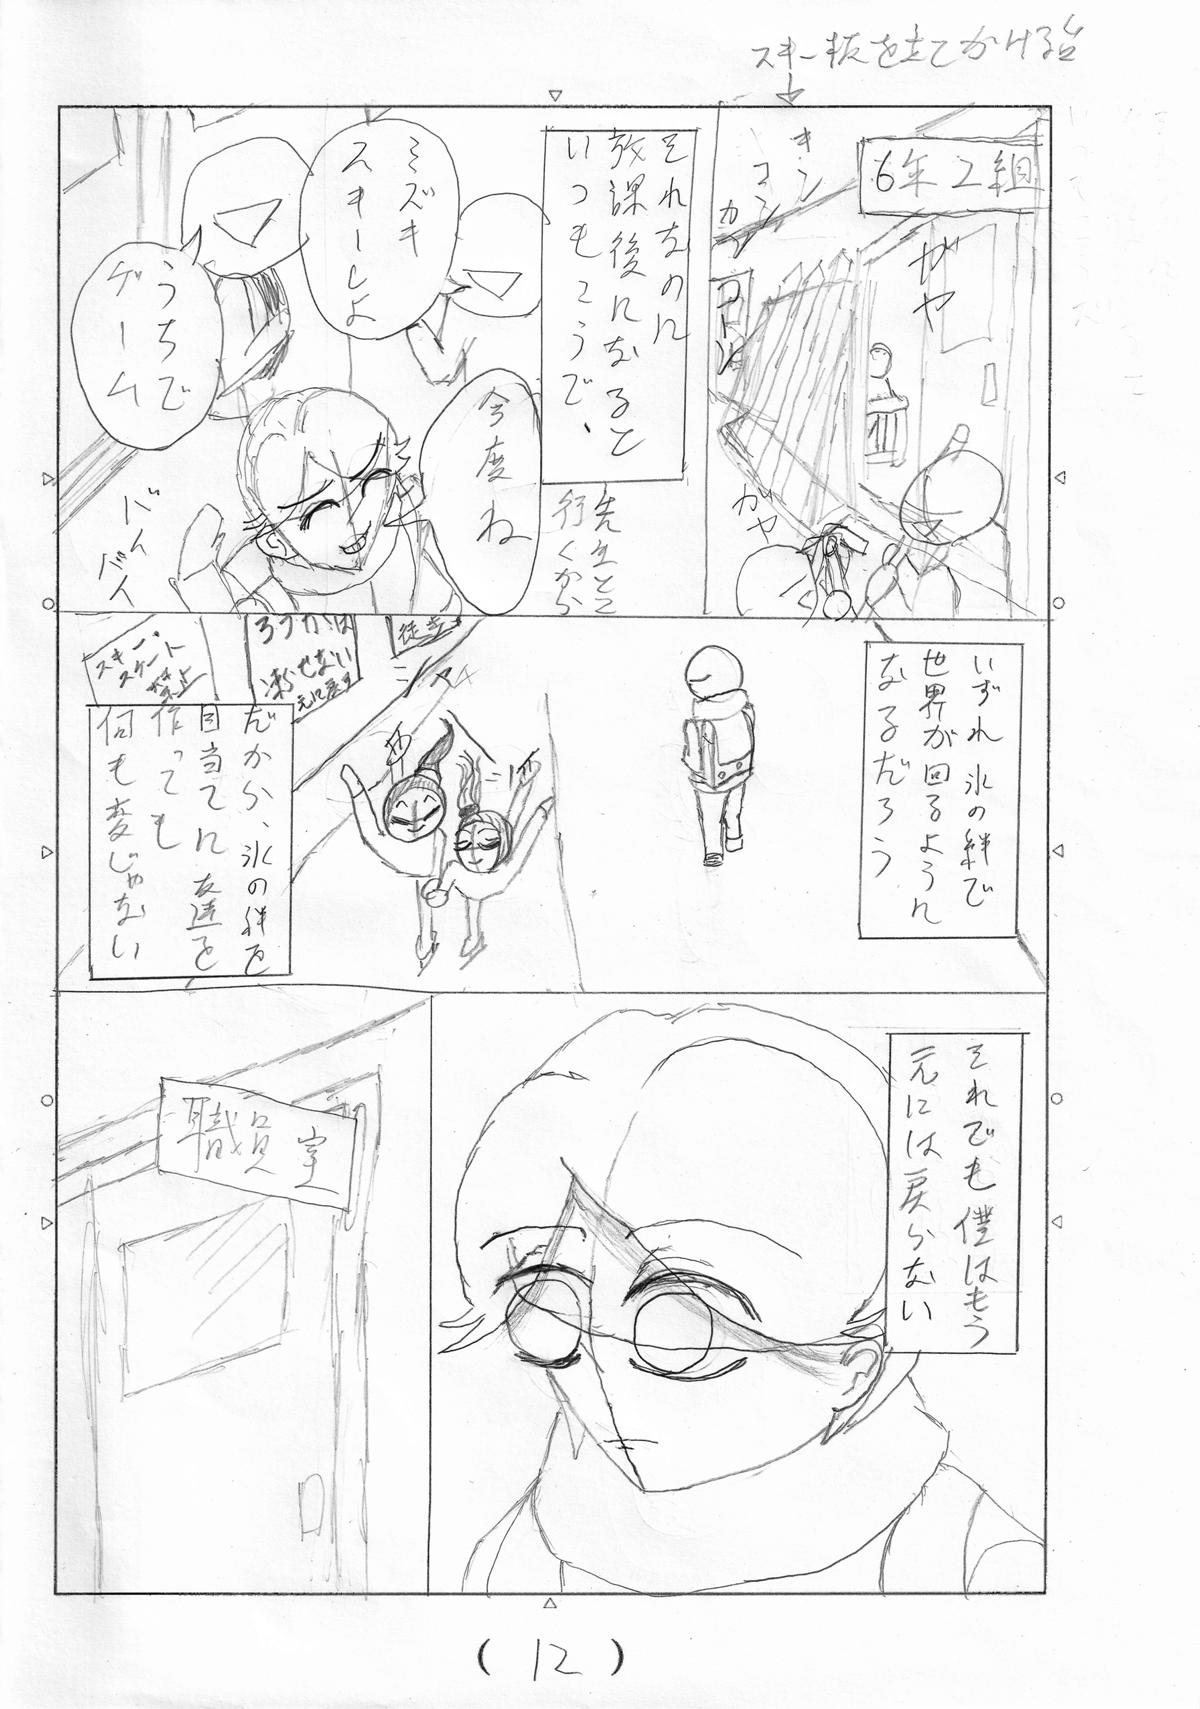 スキー板を立てかける台
6年2組
キン
コン
カン
コーン
ガヤ
ガヤ
それなのに
放課後になると
いつもこうで、
ミズキ
スキーしよ
うちで
ゲーム
今度ね
先生とこ
行くから
バイ
バイ
いずれ 氷の絆で
世界が回るように
なるだろう
ろうかは
凍らせない
元に戻す
スキー・
スケート
禁止
だから、氷の絆を
目当てに友達を
作っても
何も変じゃない
それでも僕はもう
元には戻らない
職員室
(12)